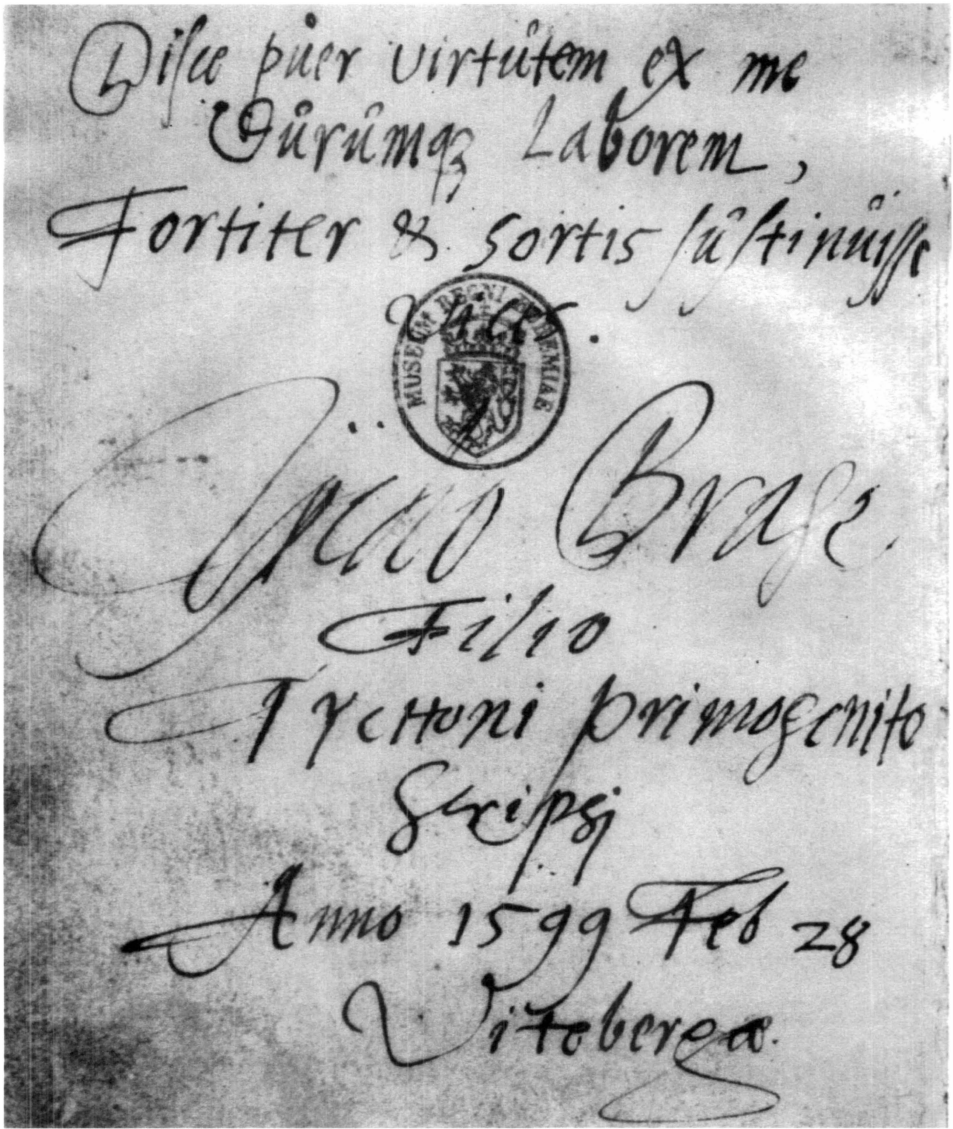 Disce puer virtutem ex me
Durumq₃ Laborem,
Fortiter & sortis sustinuisse
MUSEUM REGNI BOHEMIAE
Tÿcho Brahe
Filio
Tychoni primogenito
Scripsj
Anno 1599 Feb 28
Vitebergæ.